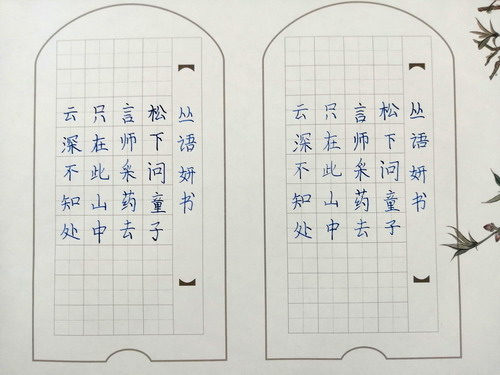 丛语妍书
松下问童子
言师采药去
只在此山中
云深不知处
丛语妍书
松下问童子
言师采药去
只在此山中
云深不知处